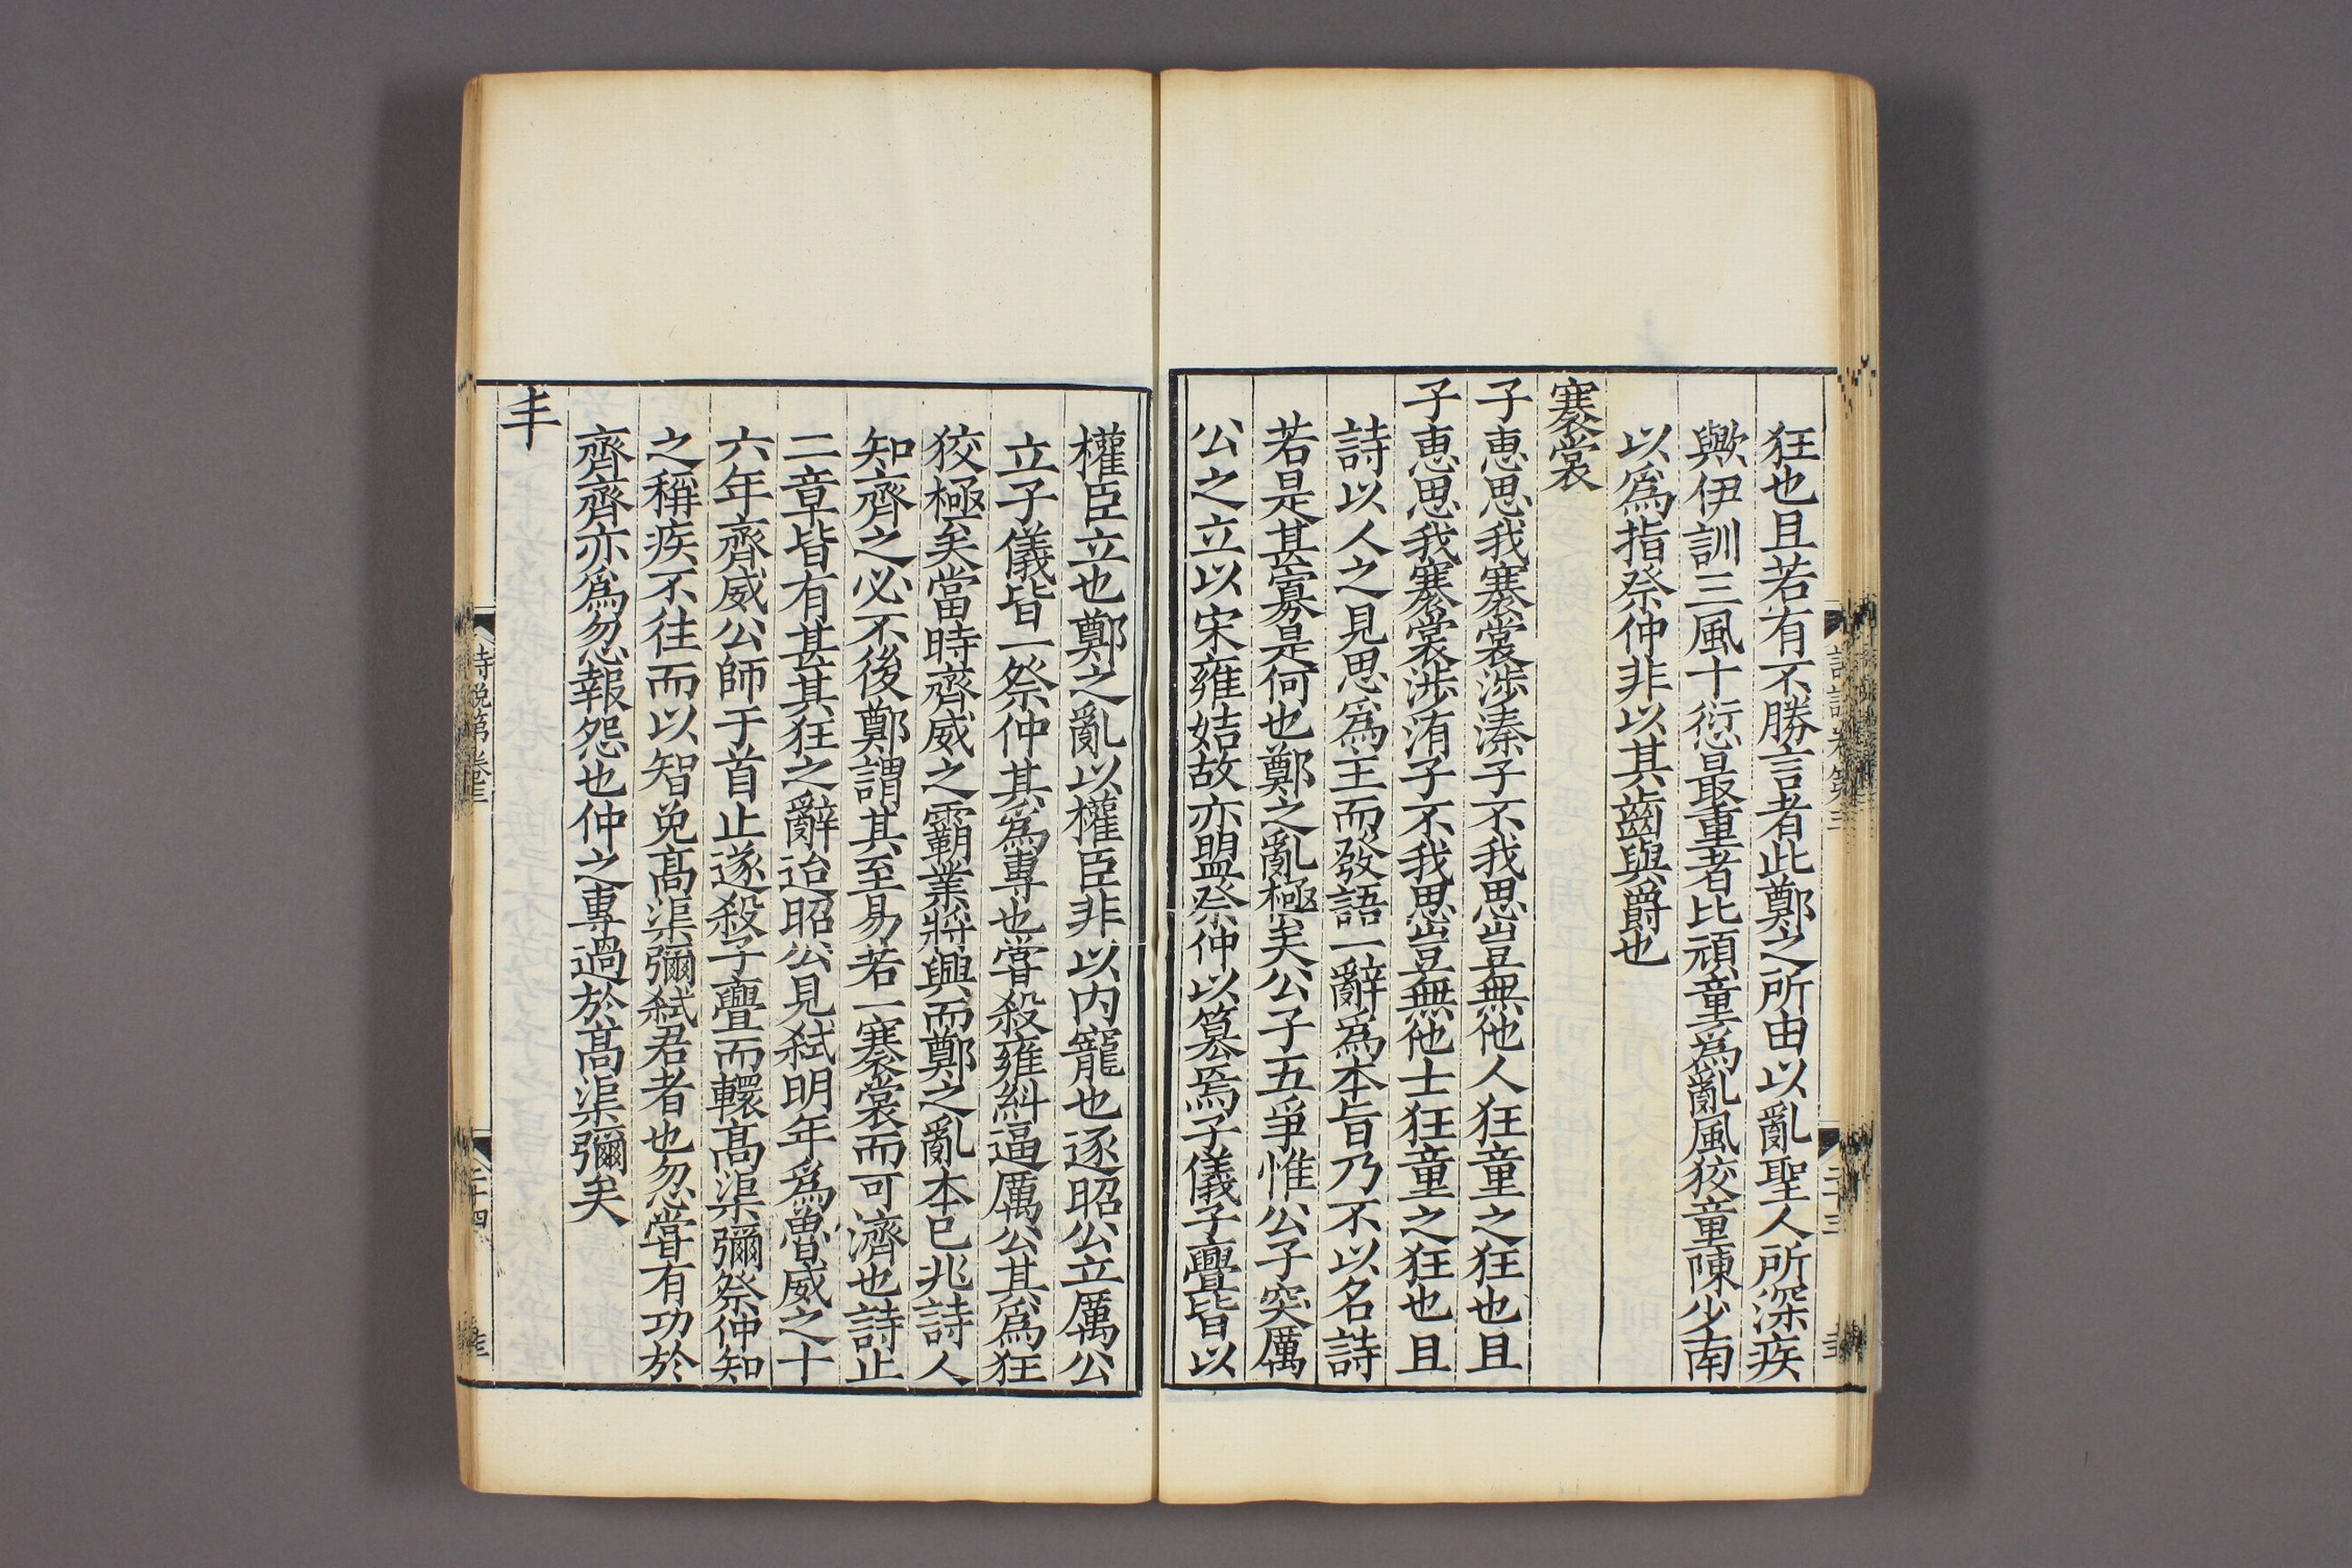 狂也且若有不勝言者此鄭之所由以亂聖人所深疾
歟伊訓三風十愆最重者比頑童爲亂風狡童陳少南
以爲指祭仲非以其齒與爵也
褰裳
子惠思我褰裳涉溱子不我思豈無他人狂童之狂也且
子惠思我褰裳涉洧子不我思豈無他士狂童之狂也且
詩以人之見思爲主而發語一辭爲本旨乃不以名詩
若是甚寡是何也鄭之亂極矣公子五爭惟公子突厲
公之立以宋雍姞故亦盟祭仲以篡焉子儀子亹皆以
權臣立也鄭之亂以權臣非以内寵也逐昭公立厲公
立子儀皆一祭仲其爲專也嘗殺雍糾逼厲公其爲狂
狡極矣當時齊威之霸業將興而鄭之亂本已兆詩人
知齊之必不後鄭謂其至易若一褰裳而可濟也詩止
二章皆有甚其狂之辭迨昭公見弑明年爲魯威之十
六年齊威公師于首止遂殺子亹而轘髙渠彌祭仲知
之稱疾不往而以智免髙渠彌弑君者也忽嘗有功於
齊齊亦爲忽報怨也仲之專過於髙渠彌矣
丰
詩説第卷三
二十四